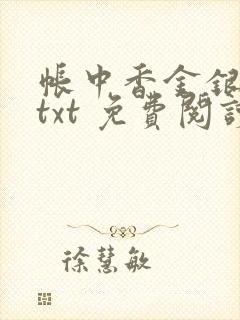 帳中香金銀
txt 免費閱讀
徐慧敏